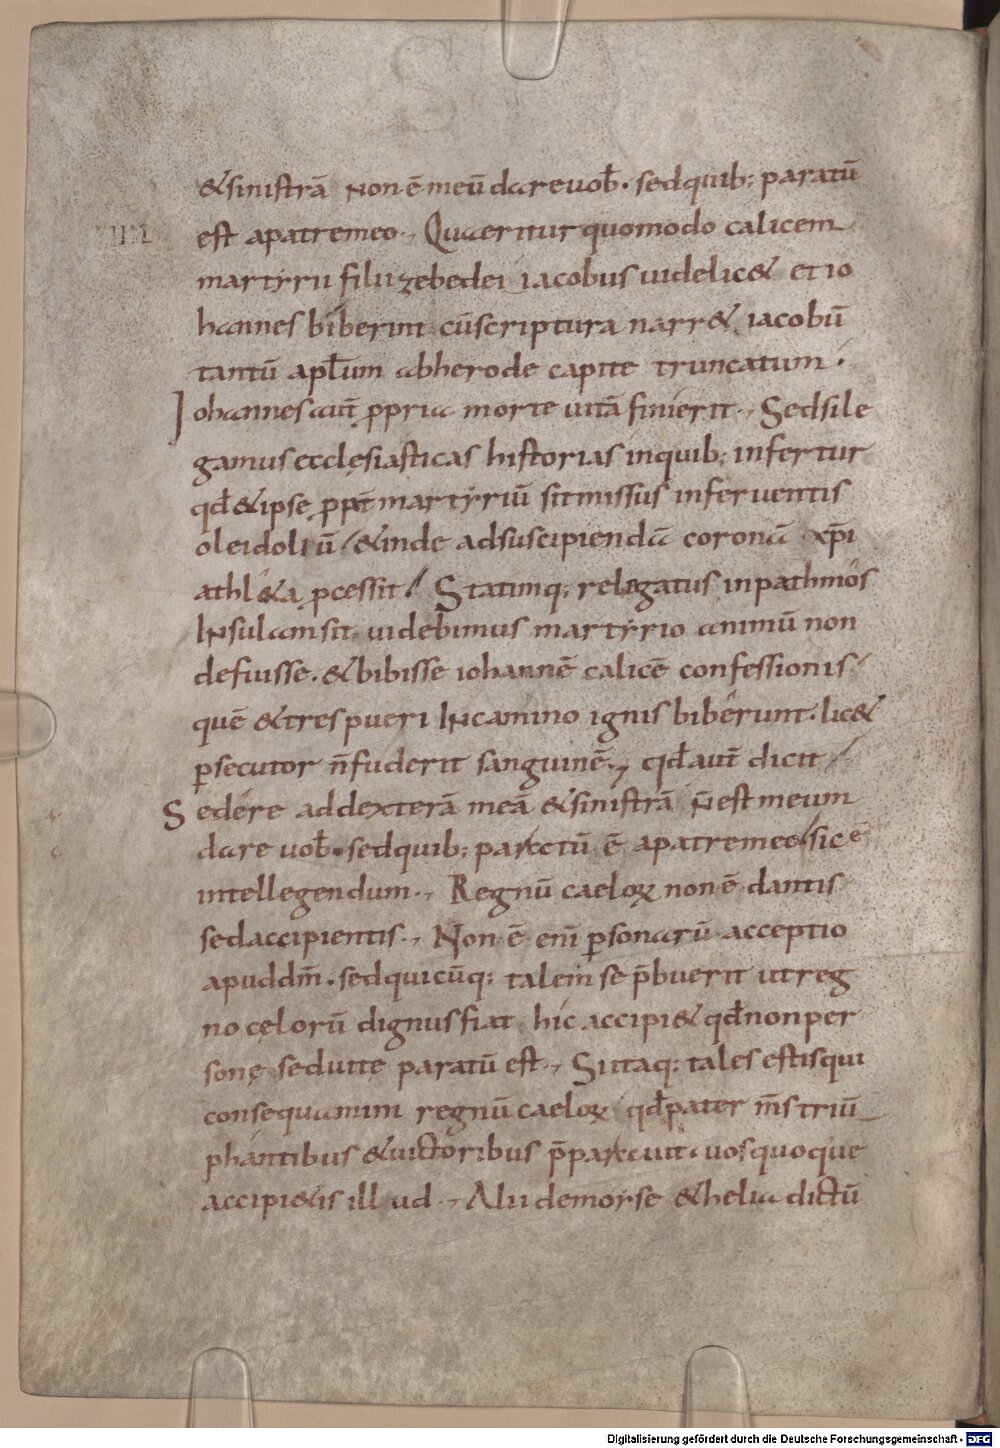 &sinistrā Non ē meū dare uob̄. sedquib; paratū
est apatremeo., Quaeritur quomodo calicem
martyrii filii zebedei iacobus uidelic& et io
hannes biberint cūscriptura narr& iacobū
tantū apl̄um abherode capite truncatum.
Iohannes aut̄ ꝓpria morte uitā finierit., Sedsile
gamus ecclęsiasticas historias inquib; infertur
qd̄ &ipse ꝓpt̄ martyriū sit missus inferuentis
olei doliū &inde adsuscipiendā coronā xp̄i
athl&a ꝓcessit. Statimq; relegatus inpathmos
INsulam sit. uidebimus martyrio animū non
defuisse. &bibisse iohannē calicē confessionis
quē &tres pueri INcamino ignis biberunt. lic&
ꝑsecutor n̄fuderit sanguinē., qd̄ aut̄ dicit
Sedere addexterā meā &sinistrā n̄ est meum
dare uob̄. sedquib; paratū ē apatremeo sic ē
intellegendum., Regnū caeloꝝ non ē dantis
sedaccipientis., Non ē eni ꝑsonarū acceptio
apuddm̄. sedquicūq; talem se p̄buerit utreg
no cęlorū dignus fiat hic accipi& qd̄ nonper
sonę seduite paratū est., Siitaq; tales estisqui
consequamini regnū caeloꝝ qd̄ pater m̄s triū
phantibus &uictoribus p̄parauit. uos quoque
accipi&is illud., Alii demorse &helia dictū
Digitalisierung gefördert durch die Deutsche Forschungsgemeinschaft - DFG